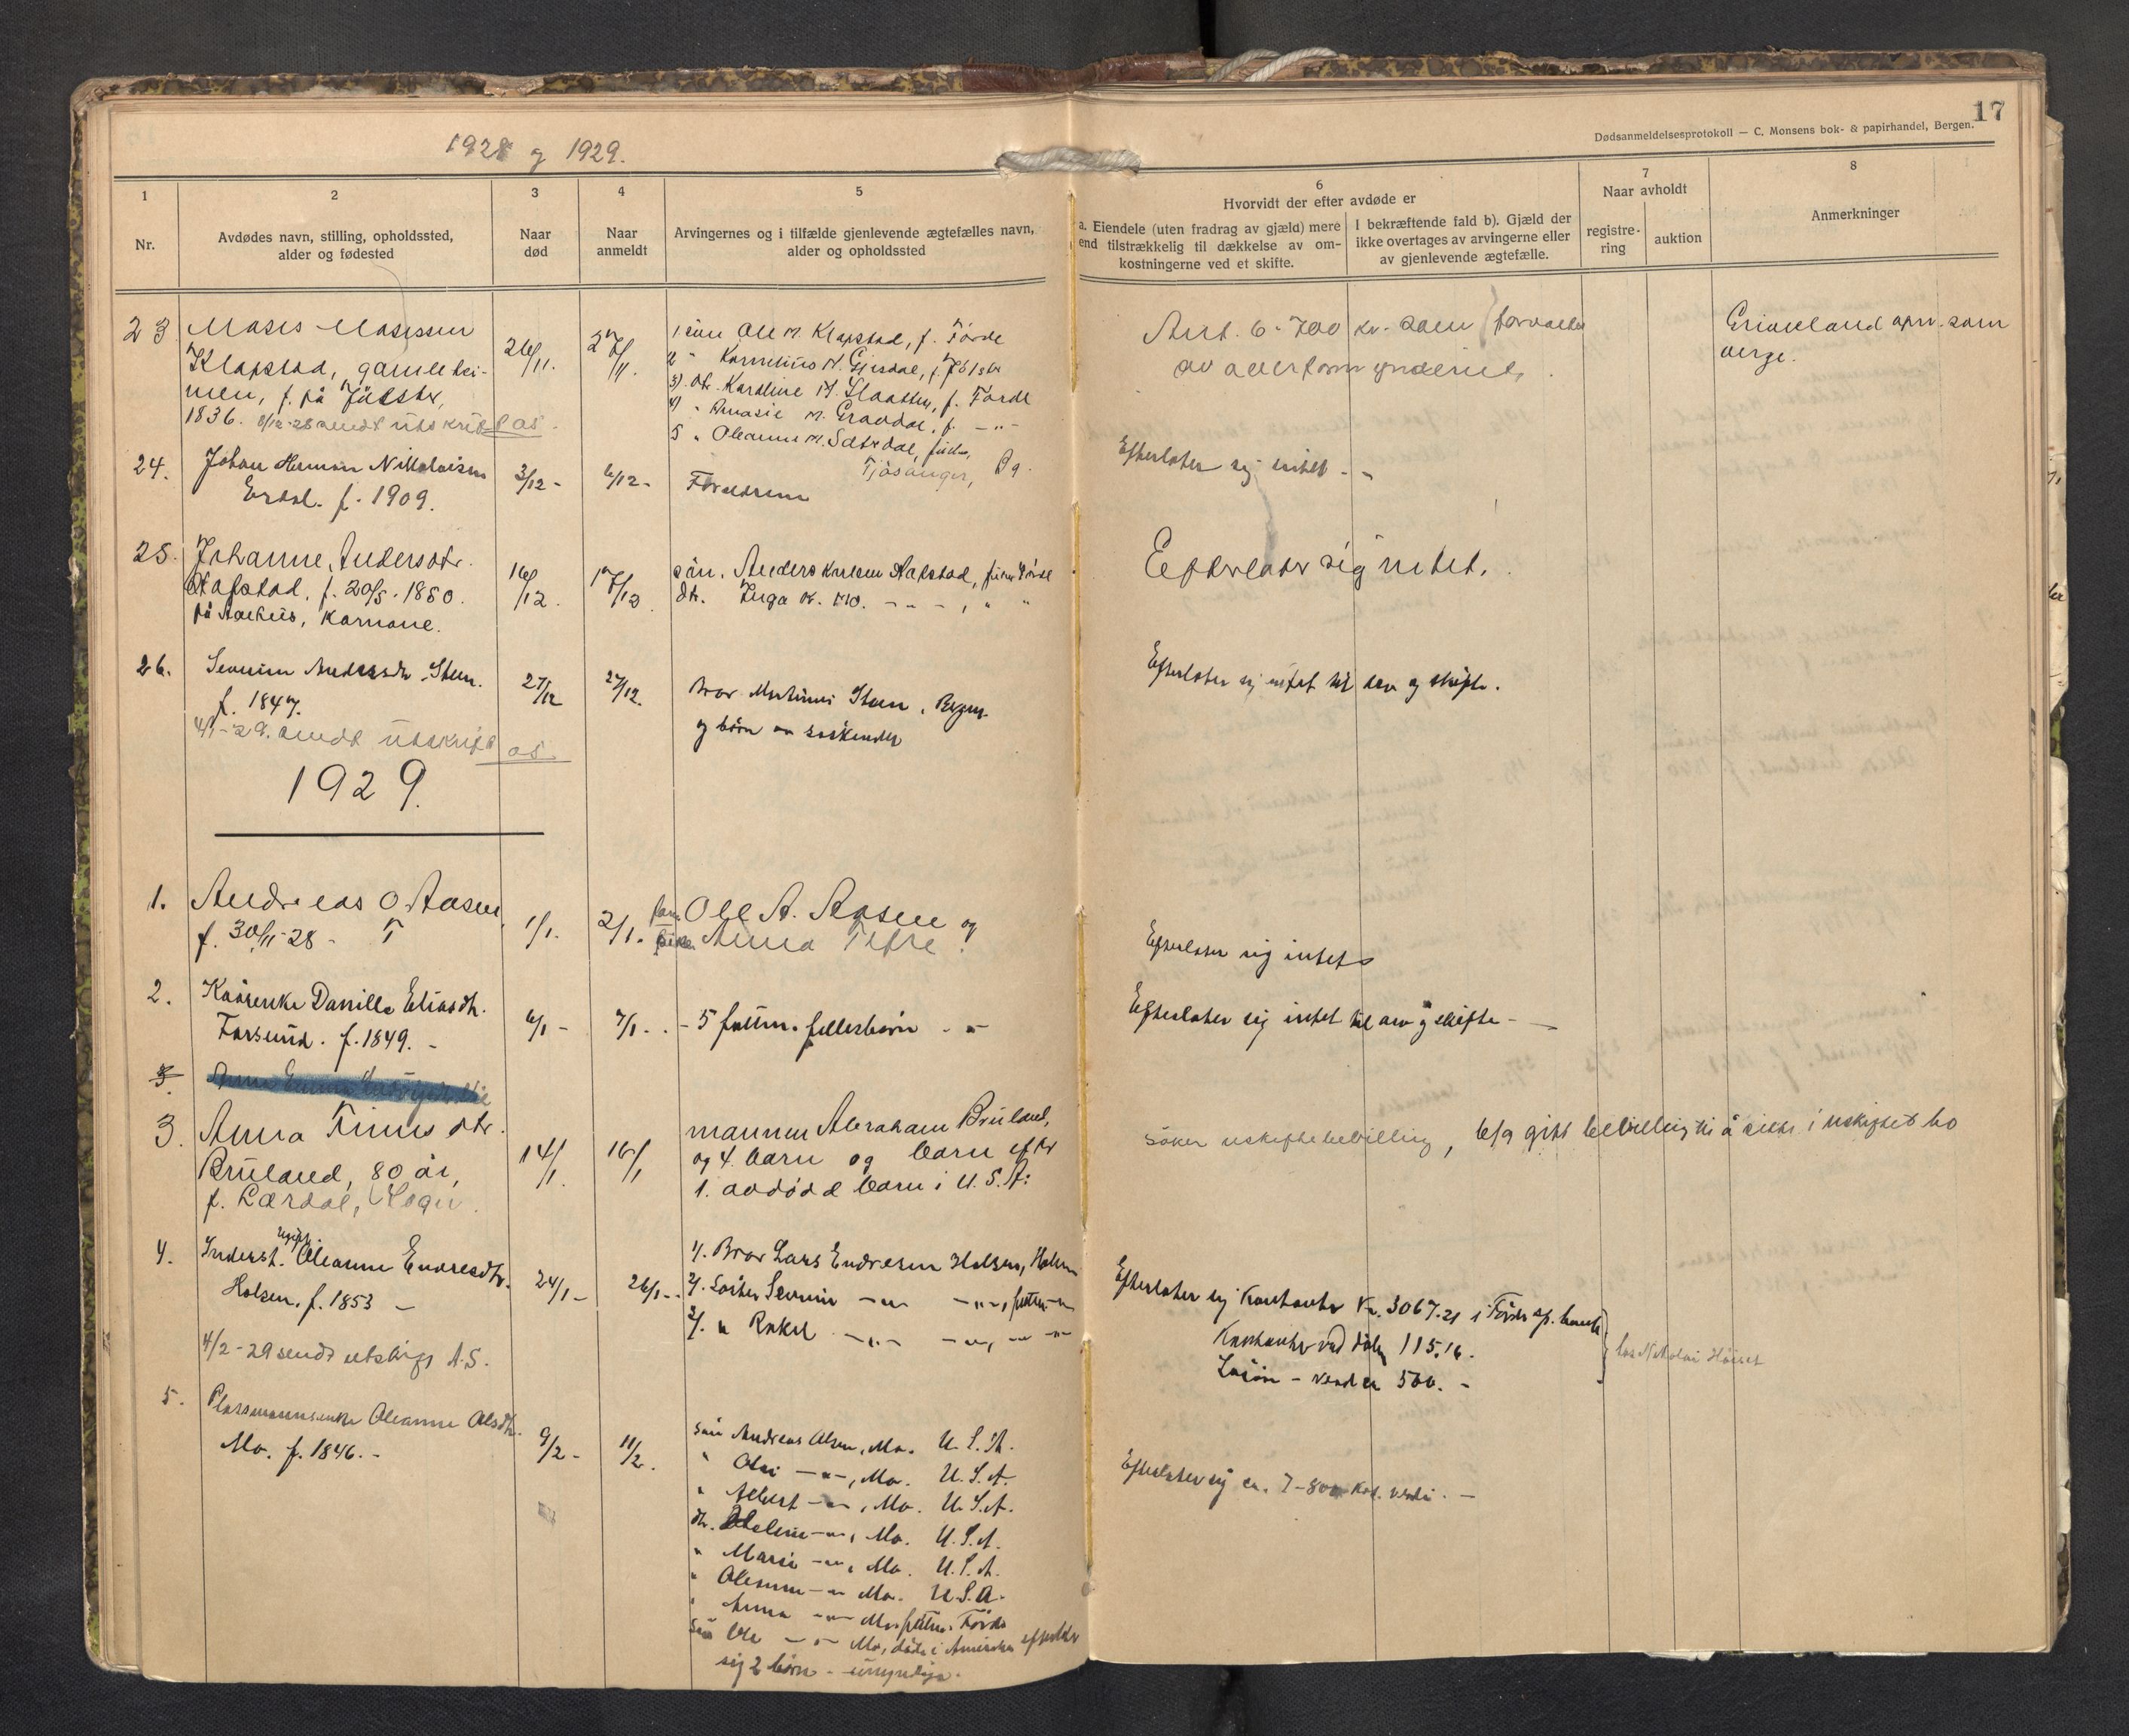 17
Dødsanmeldelsesprotokoll — C. Monsens bok- & papirhandel, Bergen.
1928 og 1929.
1
2
3
4
5
6
7
8
Nr.
Avdødes navn, stilling, opholdssted,
alder og fødested
Naar
død
Naar
anmeldt
Arvingernes og i tilfælde gjenlevende ægtefælles navn,
alder og opholdssted
Hvorvidt der efter avdøde er
a. Eiendele (uten fradrag av gjæld) mere
end tilstrækkelig til dækkelse av om-
kostningerne ved et skifte.
I bekræftende fald b). Gjæld der
ikke overtages av arvingerne eller
av gjenlevende ægtefælle.
Naar avholdt
registre-
ring
auktion
Anmerkninger
23 Moses Mosessen
Klapstad, gamlehei-
men, f. på Jölster,
1836. 8/12-28 sendt utskrift as.
26/11. 27/11.
1 sön Ole M. Klapstad, f. Förde
2 " Kornelius M. Gjesdal, f. Jölster
3) dtr. Karoline M. Slaatten, f. Förde
4) " M. f. -"-
5 " Oleanna M. Sætredal,
Fjösanger, Bg.
Ant. 6-700 kr. som forvaltes
av overformynderiet.
som
verge.
24. Johan Herman Nikolaisen
Erdal. f. 1909.
3/12 - 4/12 -
Foreldrene
Efterlater sig intet -
25. Johanne Andersdtr.
Hafstad, f. 20/5. 1850.
på Aarhus, Karmone.
16/12. 17/12
sön. Anders Knutsen Hafstad, Förde
dtr. Inga K. Mo. - " - , " "
Efterlater sig intet.
26. Severine Andersdtr Steen.
f. 1847.
4/1-29. sendt utskrift as.
27/12 27/12.
Bror Martinus Steen, Bergen
og börn av söskende
Efterlater sig intet til arv og skifte.
1929.
1. Andreas O. Aasen
f. 30/11-28 -
1/1. 2/1.
Ole A. Aasen og
pike Anna Tefre.
Efterlater sig intet
2. Kaarenke Danille Eliasdtr.
Farsund. f. 1849. -
6/1 - 7/1. -
- 5 fellesbörn - -
Efterlater sig intet til arv og skifte -
3.
3. Anna Finnes dtr.
Bruland, 80 år,
f. Lærdal, Sogn.
14/1. 16/1
mannen Abraham Bruland,
og 4. barn og barn efter
1. avdöd barn i U.S.A.
söker uskiftebevilling, 6/9 gitt bevilling til å sitte i uskiftet bo
4. Inderst. ugift. Oleanne Endresdtr.
Holsen. f. 1853 -
4/2-29 sendt utskrift A.S.
24/1 - 26/1 -
1/. Bror Lars Endresen Holsen, Holsen
2/. Söster Severine -"- -"-,
3/. " Rakel -"- -"-, -"-
Efterlater sig Kontanter Kr. 3067.21 i Förde sp. bank
Kontanter ved 115.16.
Lösöre - verd ca 500. -
hos Nikolai
5. Plassmannsenke Oleanne Olsdtr.
Mo. f. 1846. -
9/2 - 11/2.
sön Andreas Olsen, Mo. U.S.A.
" Olai -"-, Mo. U.S.A.
" Albert -"-, Mo. U.S.A.
dtr. -"-, Mo. U.S.A.
" Marie -"-, Mo. U.S.A.
" Oleanne -"- Mo. U.S.A.
" Anna -"- Mo. Förde
sön Ole -"- Mo, döde i Amerika efterlater
sig 2 börn - umyndige.
Efterlater sig ca. 7-800 Kr.